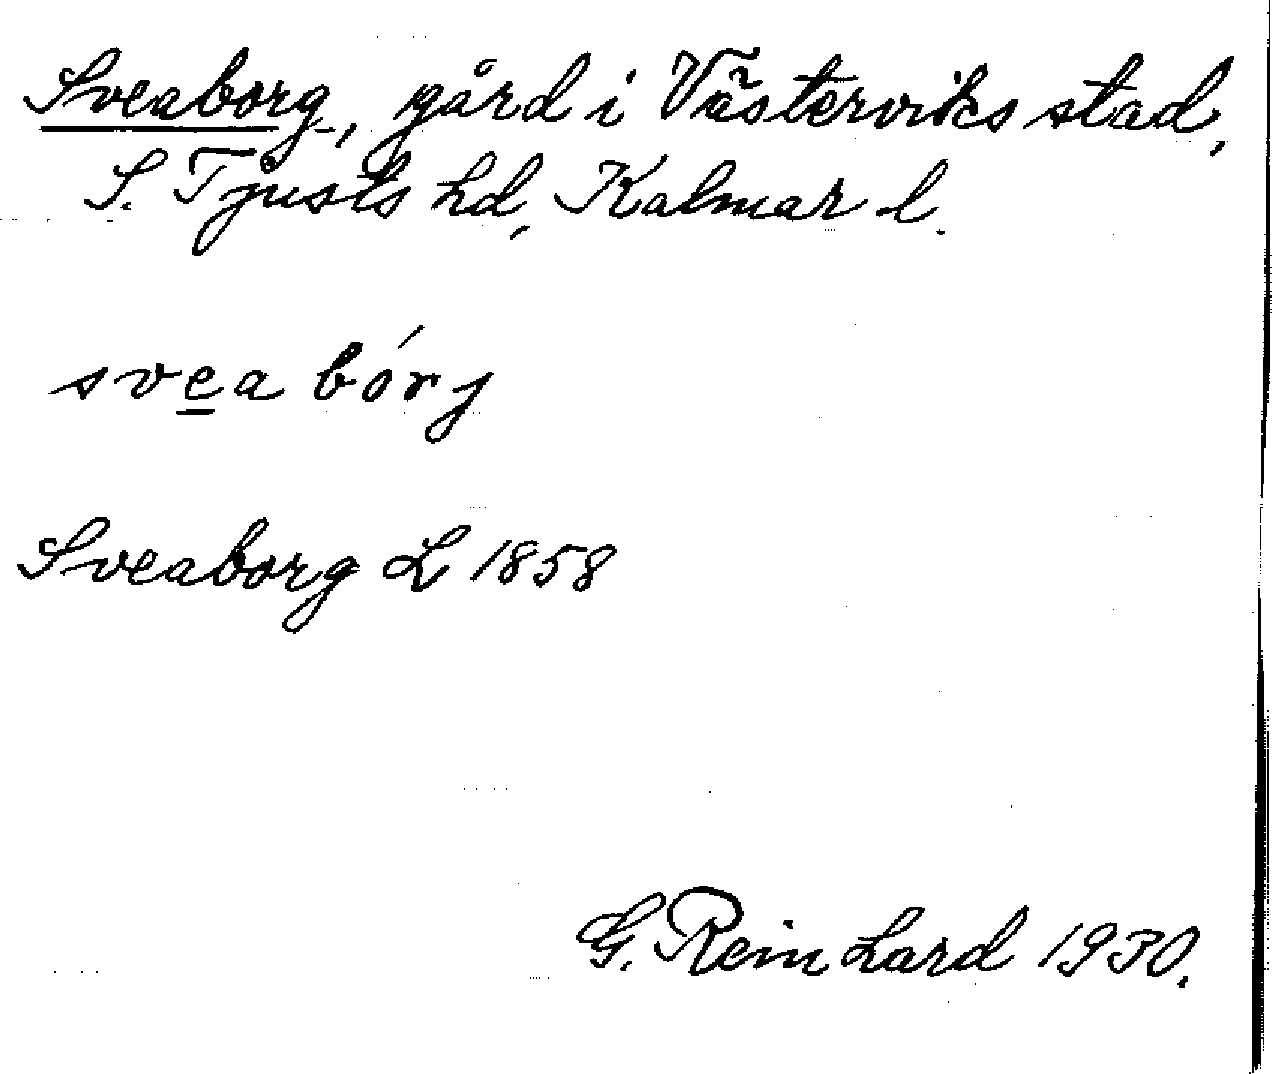 Sveaborg, gård i Västerviks stad,
S. Tjusts hd, Kalmar l.
svea bórj
Sveaborg L 1858
G. Reinhard 1930.